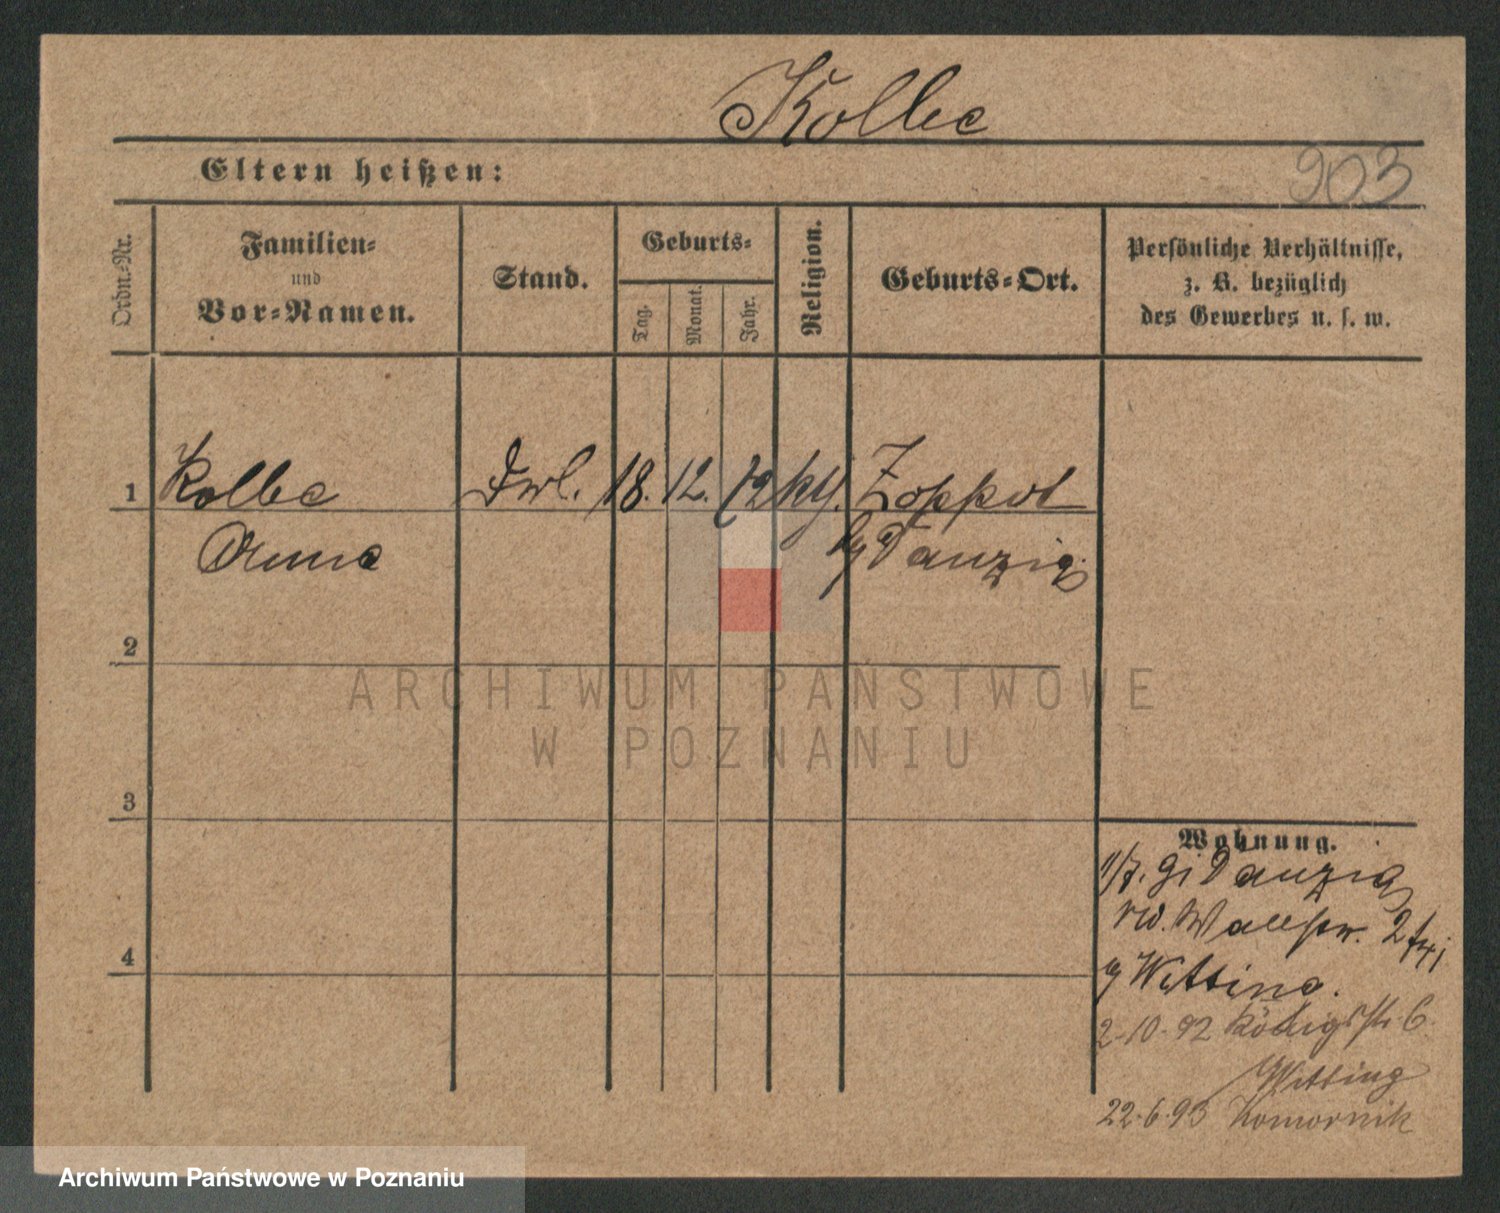 Kolbe
Eltern heißen:
903
Ordn.-Nr.
Familien-
und
Vor-Namen.
Stand.
Geburts-
Tag.
Monat.
Jahr.
Religion.
Geburts-Ort.
Persönliche Verhältnisse,
z. B. bezüglich
des Gewerbes u. s. w.
1 Kolbe 18. 12. 72 Zoppot
Anna Danzig
2
3
4
Wohnung.
1/7. Danzig
2
Witting.
2.10.92 Königstr. 6.
Witting
22.6.93 Komornik
ARCHIWUM PAŃSTWOWE
W POZNANIU
Archiwum Państwowe w Poznaniu